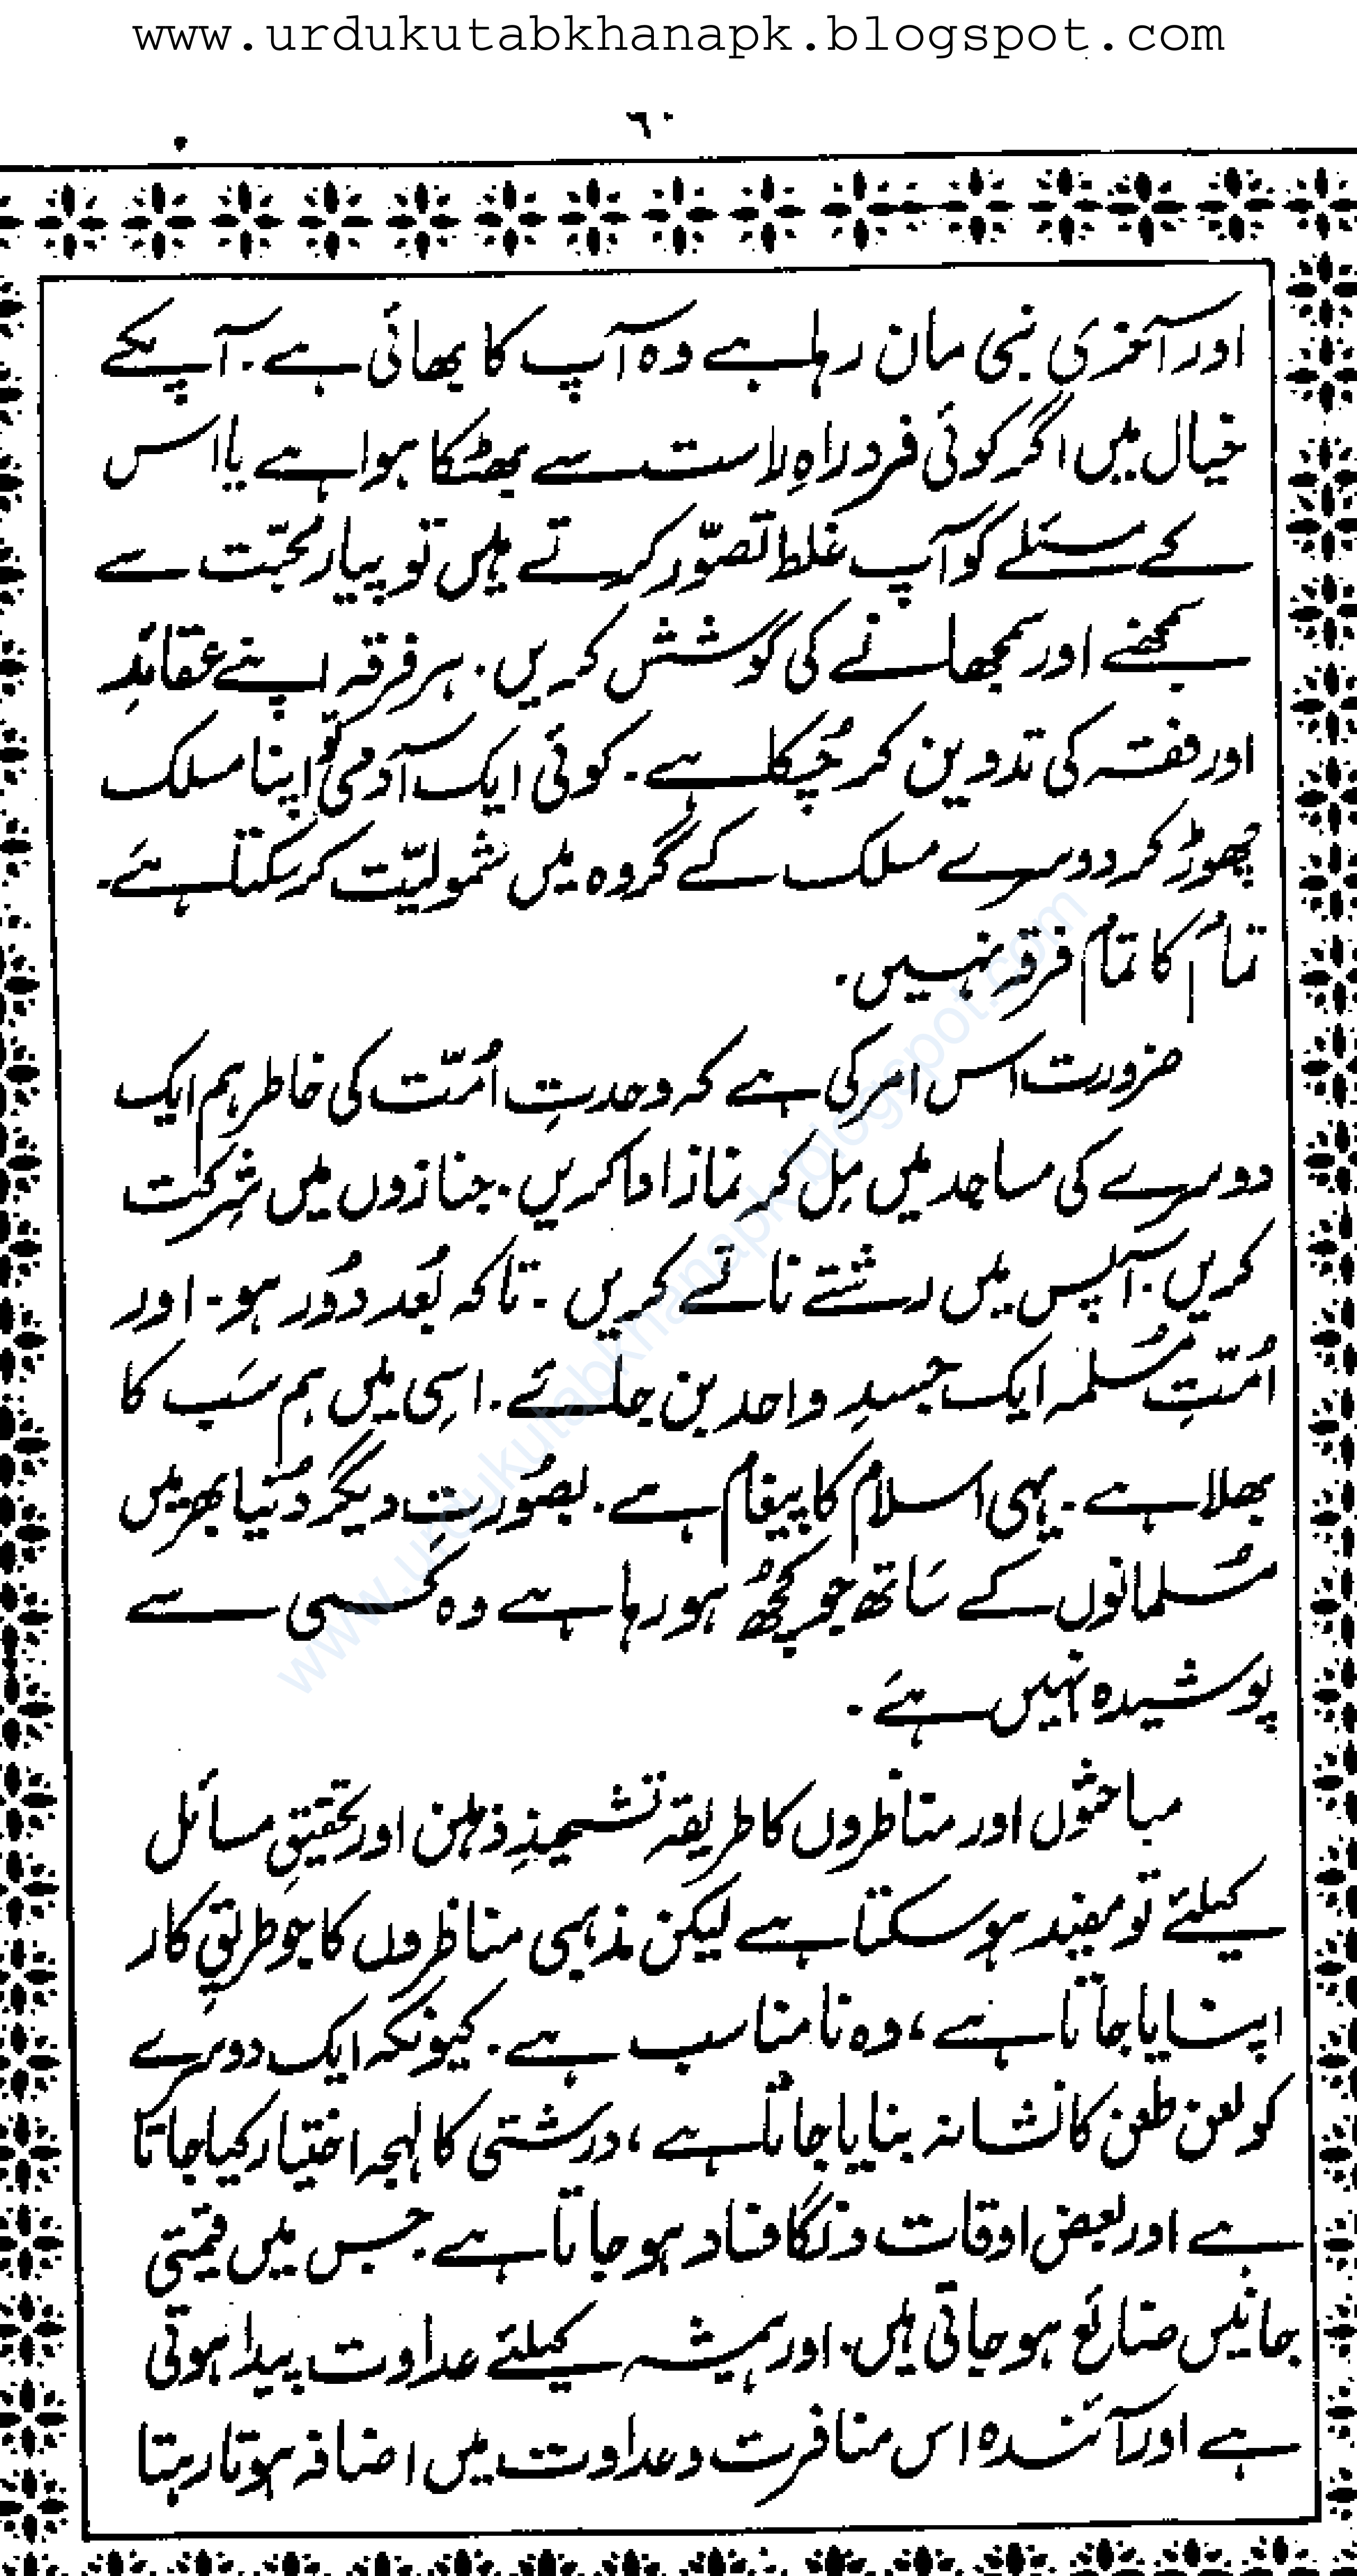 www.urdukutabkhanapk.blogspot.com
٦٠
اور آخری نبی مان رہا ہے وہ آپ کا بھائی ہے۔ آپکے
خیال میں اگر کوئی فرد راہِ راست سے بھٹکا ہوا ہے یا اس
کے مسئلے کو آپ غلط تصوّر کرتے ہیں تو پیار محبّت سے
سمجھنے اور سمجھانے کی کوشش کریں۔ ہر فرقہ اپنے عقائدِ
اور فقہ کی تدوین کر چُکا ہے۔ کوئی ایک آدمی تو اپنا مسلک
چھوڑ کر دوسرے مسلک کے گروہ میں شمولیّت کر سکتا ہے۔
تمام کا تمام فرقہ نہیں۔
ضرورت اس امر کی ہے کہ وحدتِ اُمّت کی خاطر ہم ایک
دوسرے کی مساجد میں مِل کر نماز ادا کریں۔ جنازوں میں شِرکت
کریں۔ آپس میں رشتے ناتے کریں۔ تاکہ بُعد دُور ہو۔ اور
اُمّتِ مُسلمہ ایک جسدِ واحد بن جائے۔ اسِی میں ہم سَب کا
بھلا ہے۔ یہی اسلام کا پیغام ہے۔ بصُورتِ دیگر دُنیا بھر میں
مُسلمانوں کے سَاتھ جو کچُھ ہو رہا ہے وہ کسی سے
پوشیدہ نہیں ہے۔
مباحثوں اور مناظروں کا طریقہ تشحیذِ ذہن اور تحقیقِ مسائل
کیلئے تو مفید ہو سکتا ہے لیکن مذہبی مناظروں کا جو طریقِ کار
اپنایا جاتا ہے، وہ نامناسب ہے۔ کیونکہ ایک دوسرے
کو لعن طعن کا نشانہ بنایا جاتا ہے، درشتی کا لہجہ اختیار کیا جاتا
ہے اور بعض اوقات دنگا فساد ہو جاتا ہے۔ جس میں قیمتی
جانیں ضائع ہو جاتی ہیں۔ اور ہمیشہ کیلئے عداوت پیدا ہوتی
ہے اور آئندہ اس منافرت و عداوت میں اضافہ ہوتا رہتا
www.urdukutabkhanapk.blogspot.com